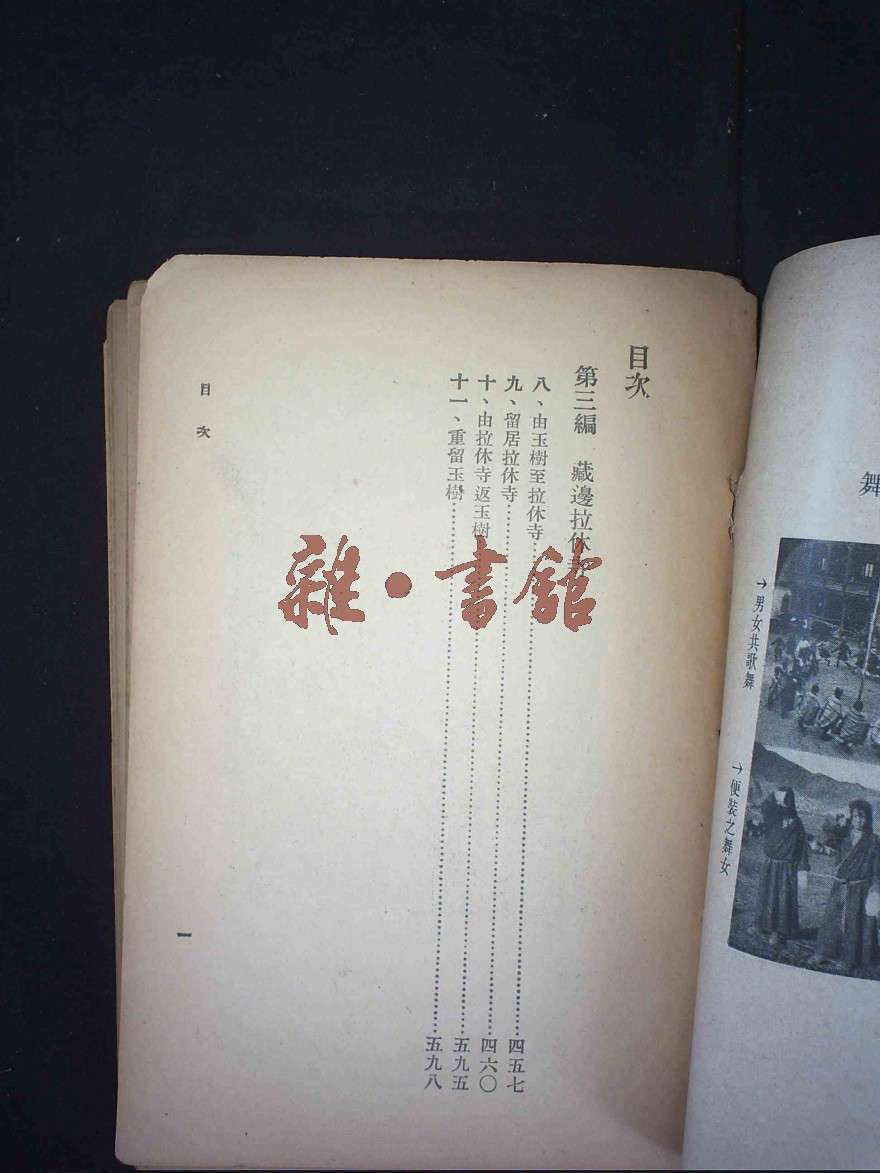 目次
第三編　藏邊拉休寺
八、由玉樹至拉休寺……四五七
九、留居拉休寺……四六〇
十、由拉休寺返玉樹……五九五
十一、重留玉樹……五九八
目次
一
雜·書館
舞
→男女共歌舞
→便裝之舞女